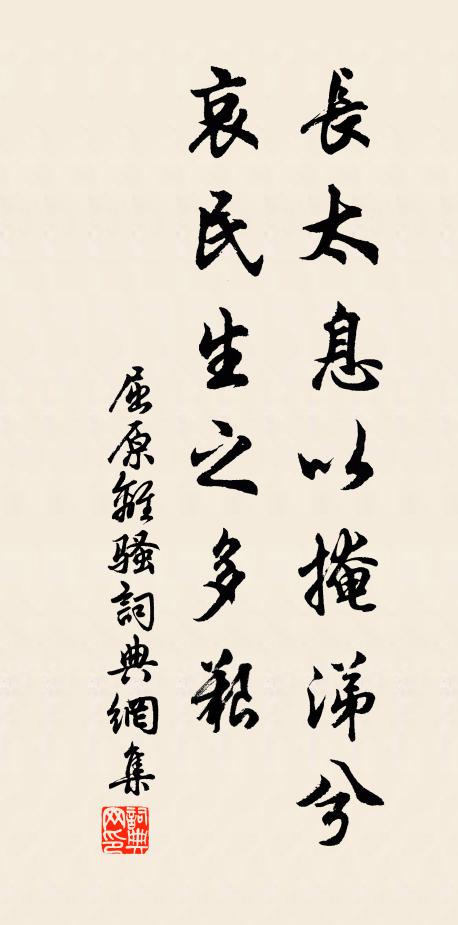 長太息以掩涕兮
哀民生之多艱
屈原離騷詞典網集
詞典
网印